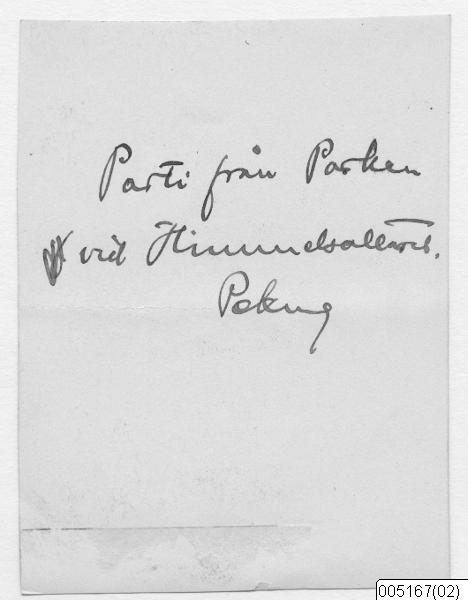 Parti från Parken
vid Himmelsaltaret.
Peking
005167(02)